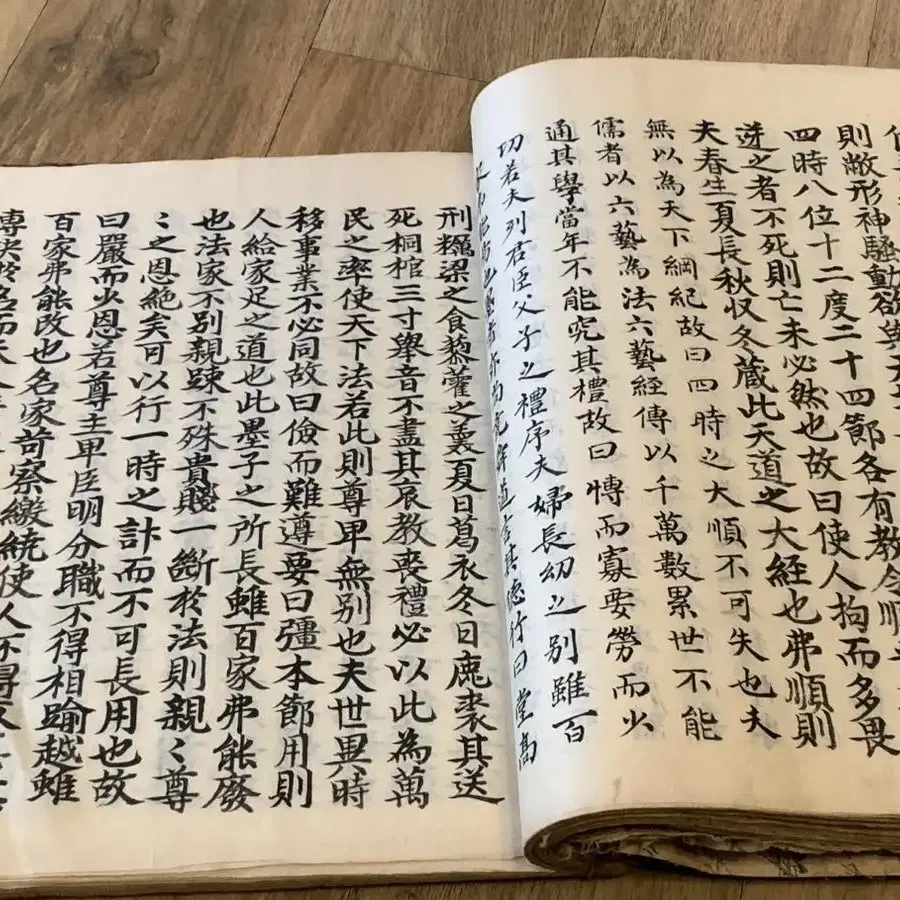 則敝形神騷動欲與天
四時八位十二度二十四節各有教令順
逆之者不死則亡未必然也故曰使人拘而多畏
夫春生夏長秋収冬蔵此天道之大經也弗順則
無以為天下綱紀故曰四時之大順不可失也夫
儒者以六藝為法六藝經傳以千萬數累世不能
通其學當年不能究其禮故曰愽而寡要勞而少
功若夫列君臣父子之禮序夫婦長幼之別雖百
家弗能易也墨者亦尚堯舜道言其德行曰堂高
刑糲粱之食藜藿之羹夏日葛衣冬日鹿裘其送
死桐棺三寸舉音不盡其哀教喪禮必以此為萬
民之率使天下法若此則尊卑無別也夫世異時
移事業不必同故曰儉而難遵要曰彊本節用則
人給家足之道也此墨子之所長雖百家弗能廢
也法家不別親踈不殊貴賤一斷於法則親〻尊
〻之恩絶矣可以行一時之計而不可長用也故
曰嚴而少恩若尊主卑臣明分職不得相踰越雖
百家弗能改也名家苛察繳繞使人不得
決於名而失人